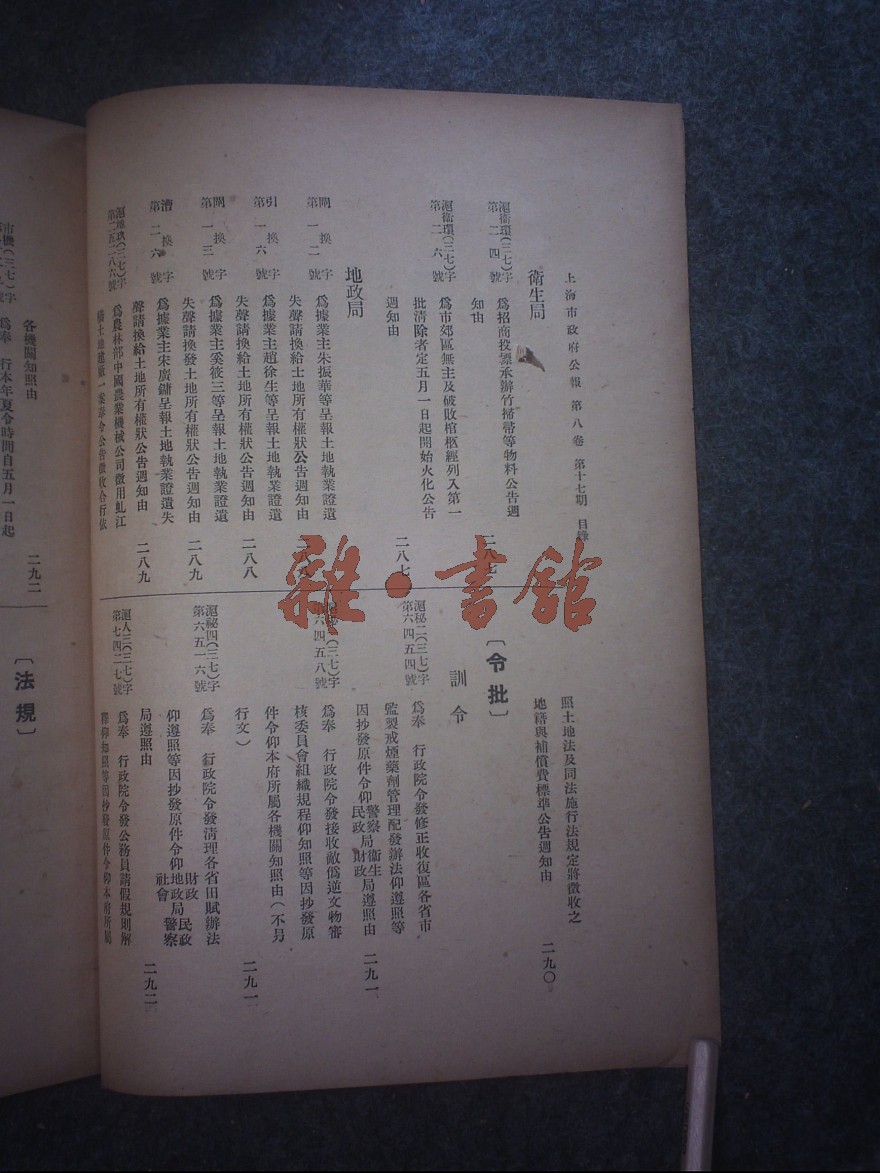 上海市政府公報 第八卷 第十七期 目錄
衛生局
滬衛環(三七)字
第二四號
爲招商投標承辦竹掃帚等物料公告週
知由
二八七
滬衛環(三七)字
第二六號
爲市郊區無主及破敗棺柩經列入第一
批清除者定五月一日起開始火化公告
週知由
二八七
地政局
閘換字
第一二號
爲據業主朱振華等呈報土地執業證遺
失聲請換給土地所有權狀公告週知由
引換字
第一六號
爲據業主趙徐生等呈報土地執業證遺
失聲請換給土地所有權狀公告週知由
二八八
閘換字
第一三號
爲據業主奚筱三等呈報土地執業證遺
失聲請換發土地所有權狀公告週知由
二八九
漕換字
第二六號
爲據業主宋廣鏞呈報土地執業證遺失
聲請換給土地所有權狀公告週知由
二八九
第二五二八六號
爲農林部中國農業機械公司徵用虬江
碼土地建廠一案奉令公告徵收合行依
照土地法及同法施行法規定將徵收之
地籍與補償費標準公告週知由
二九〇
〔令批〕
訓令
滬秘二(三七)字
第六四五四號
爲奉 行政院令發修正收復區各省市
監製戒煙藥劑管理配發辦法仰遵照等
因抄發原件令仰警察局衛生
民政局財政局遵照由
二九一
第六四五八號
爲奉 行政院令發接收敵僞逆文物審
核委員會組織規程仰知照等因抄發原
件令仰本府所屬各機關知照由(不另
行文)
二九一
滬秘四(三七)字
第六五一六號
爲奉 行政院令發清理各省田賦辦法
仰遵照等因抄發原件令仰地政局
財政
民政
社會
警察
局遵照由
二九二
滬人三(三七)字
第七四二七號
爲奉 行政院令發公務員請假規則解
釋仰知照等因抄發原件令仰本府所屬
各機關知照由
二九二
市機(三七)字
爲奉 行本年夏令時間自五月一日起
〔法規〕
雜·書館